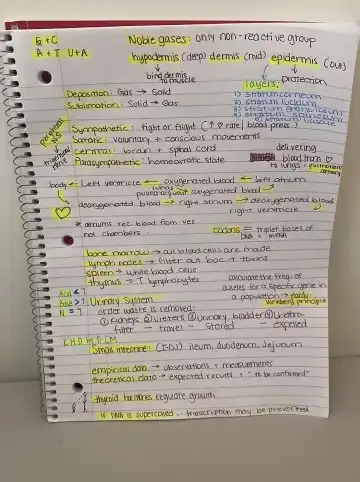 G + C
A + T U + A
Noble gases: only non-reactive group
hypodermis (deep) dermis (mid) epidermis (out)
bind dermis to muscle
protection
layers:
1) stratum corneum
2) stratum lucidum
3) stratum granulosum
4) stratum spinosum
5) stratum basale
Deposition: Gas → Solid
Sublimation: Solid → Gas
peripheral NS
Sympathetic: fight or flight (↑ ♡ rate, blood press.)
Somatic: voluntary + conscious movements
central: brain + spinal cord
Parasympathetic: homeostatic state
delivering
blood from ♡
to lungs = pulmonary artery
body ← left ventricle ← oxygenated blood ← left atrium
lungs
pulmonary → oxygenated blood
deoxygenated blood → right atrium → deoxygenated blood
right ventricle
* atriums rec. blood from
not chambers
codons = triplet bases of
DNA + mRNA
bone marrow → all blood cells are made
lymph nodes → filter out bac + toxins
spleen → white blood cells
thymus → T lymphocytes
calculate the freq. of
alleles for a specific gene in
a population → Hardy-
Weinberg principle
Acid < 7
Base > 7
N = 7
Urinary System
order waste is removed:
① kidneys ② ureters ③ urinary bladder ④ urethra
filter — travel — stored — expelled
Small intestine: (I-DJ) ileum, duodenum, jejunum
empirical data → observations + measurements
theoretical data → expected results + "to be confirmed"
thyroid hormones regulate growth
if DNA is supercoiled... transcription may be prevented